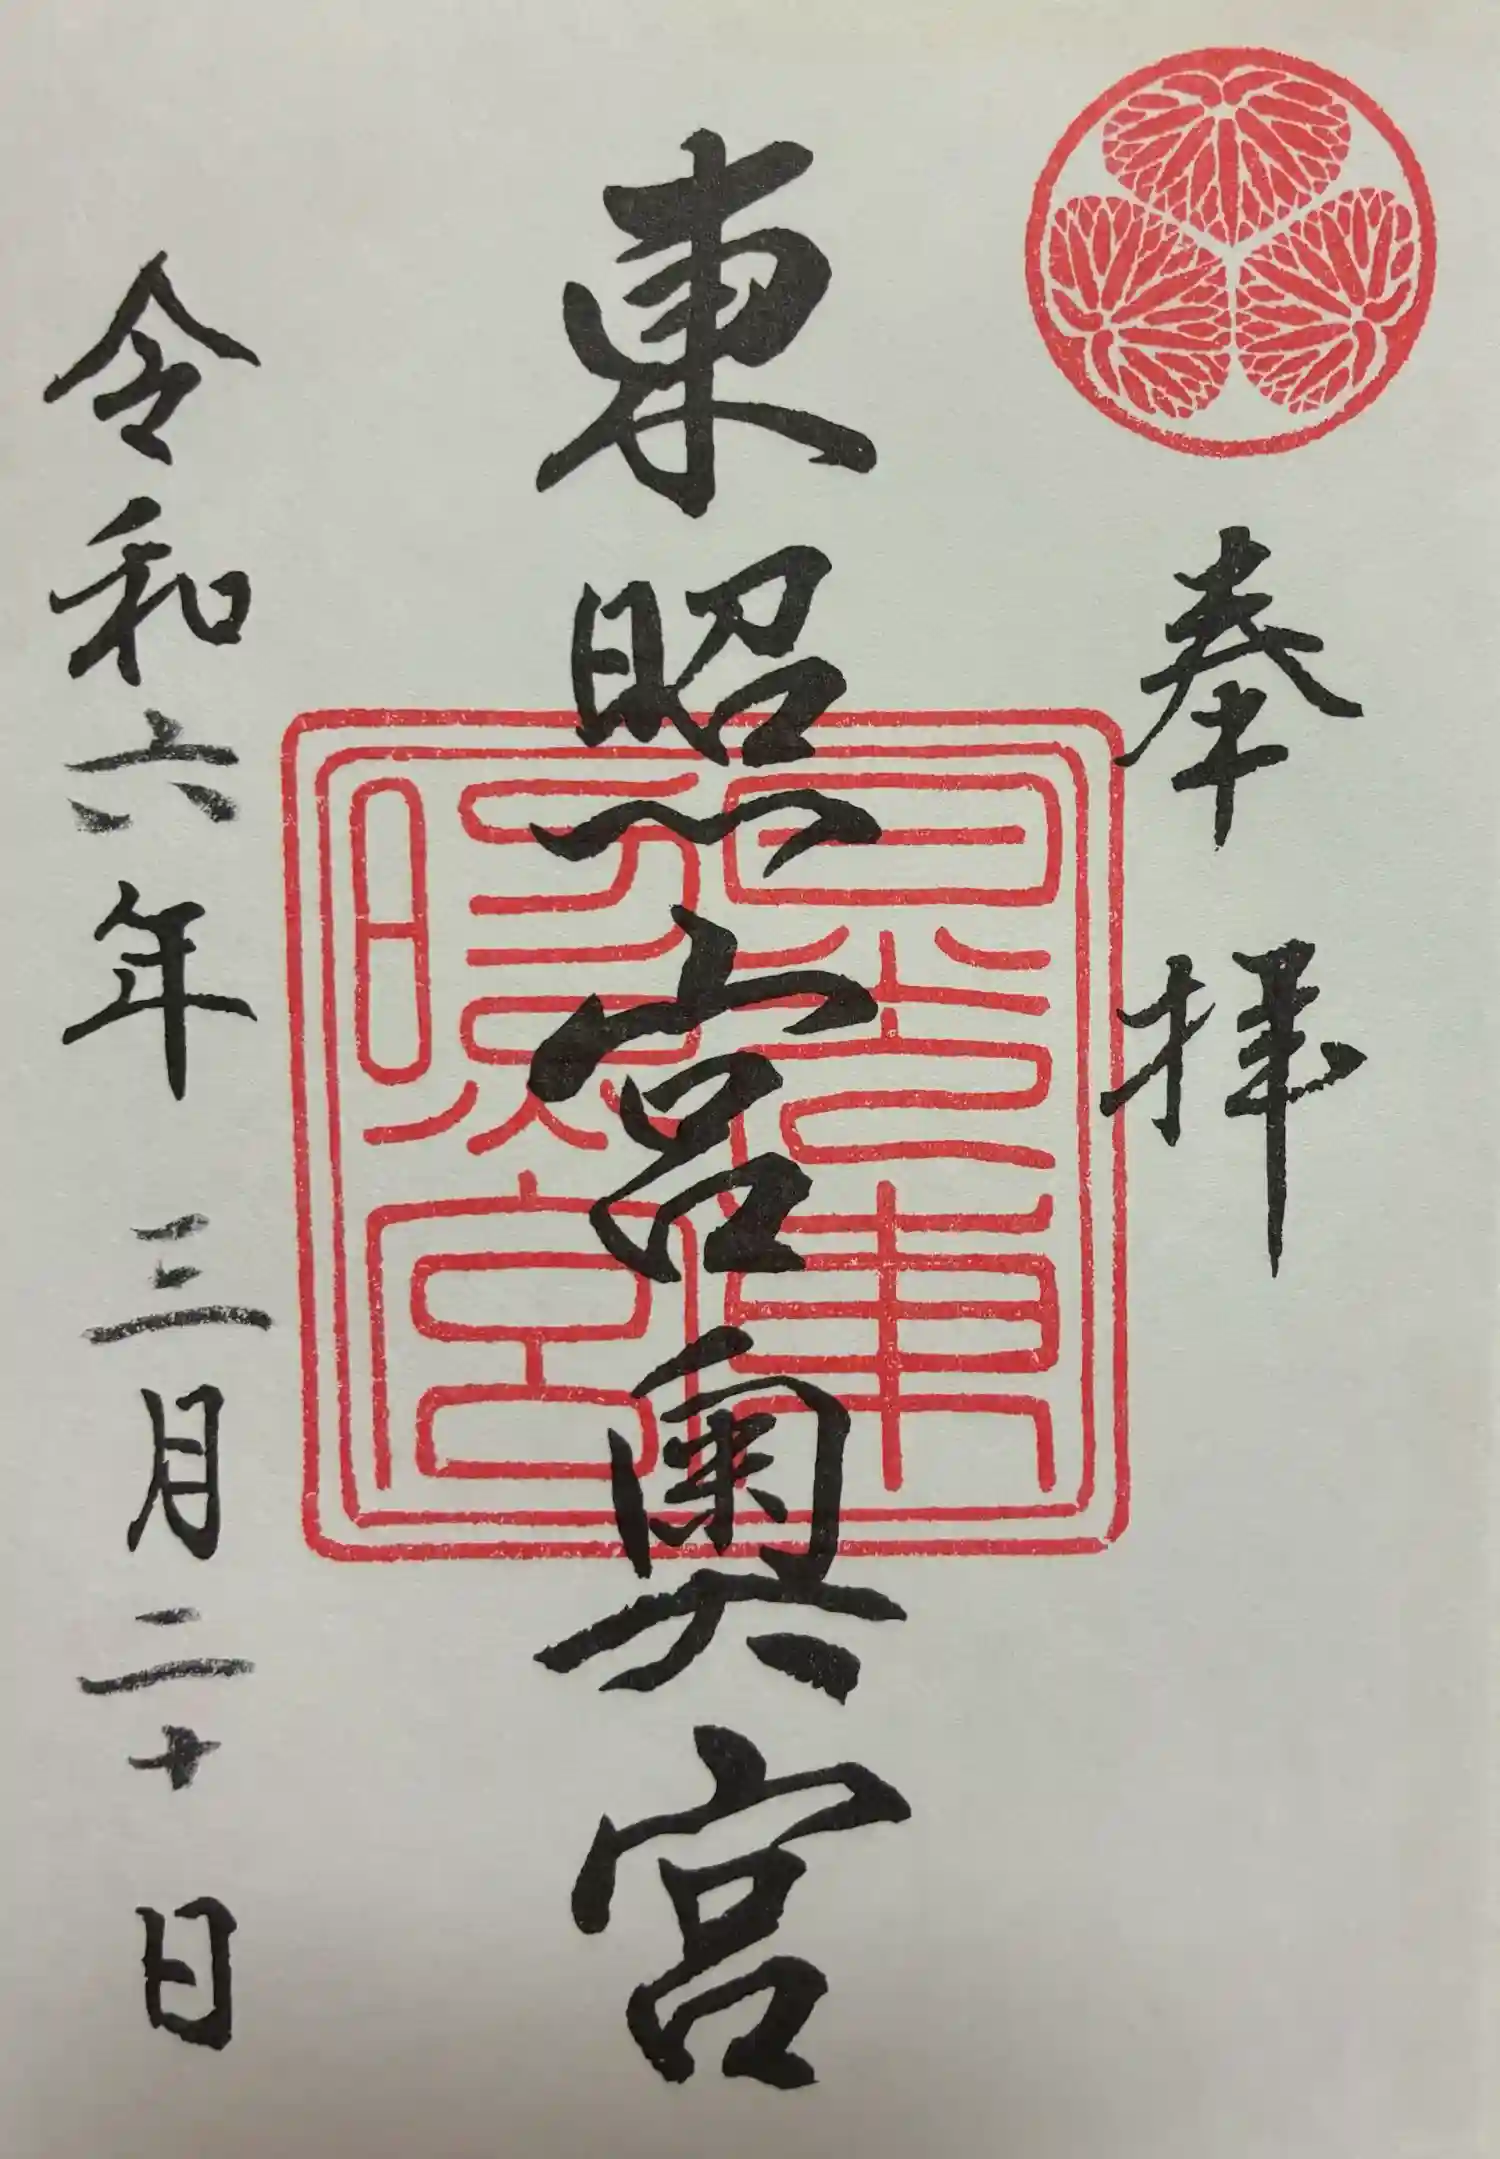 奉拝
東照宮奥宮
日光東
照宮
令和六年三月二十日